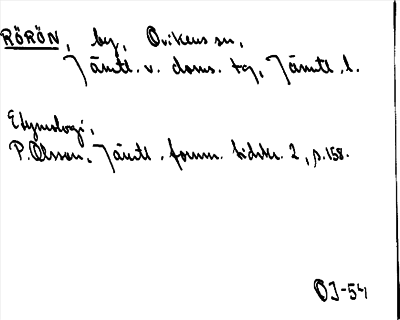 RÖRÖN, by, Ovikens sn,
Jämtl. v. doms. tg, Jämtl. l.
Etymologi,
P. Olsson, Jämtl. fornm. tidskr. 2, s. 158.
OJ-54